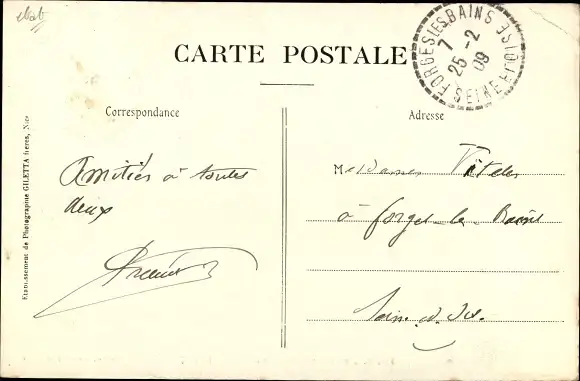 CARTE POSTALE
FORGES LES BAINS
7
25 -2
09
SEINE ET OISE
Correspondance
Adresse
Amitiés à toutes
deux
Mesdames
à Forges-les-Bains
Seine-et-Oise
Etablissement de Photographie GILETTA frères, Nice